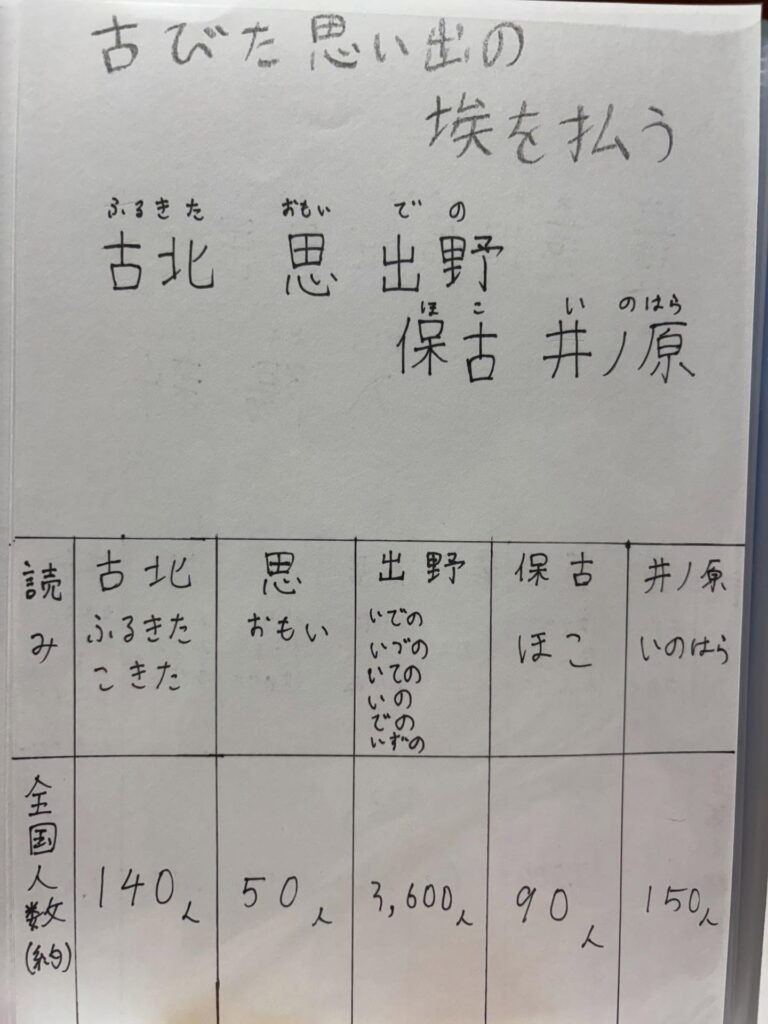 古びた思い出の
埃を払う
ふるきた おもい での
古北 思 出野
ほこ いのはら
保古 井ノ原
読み 古北 思 出野 保古 井ノ原
ふるきた おもい いでの ほこ いのはら
こきた いづの
いての
いの
での
いずの
全国人数(約) 140人 50人 3,600人 90人 150人